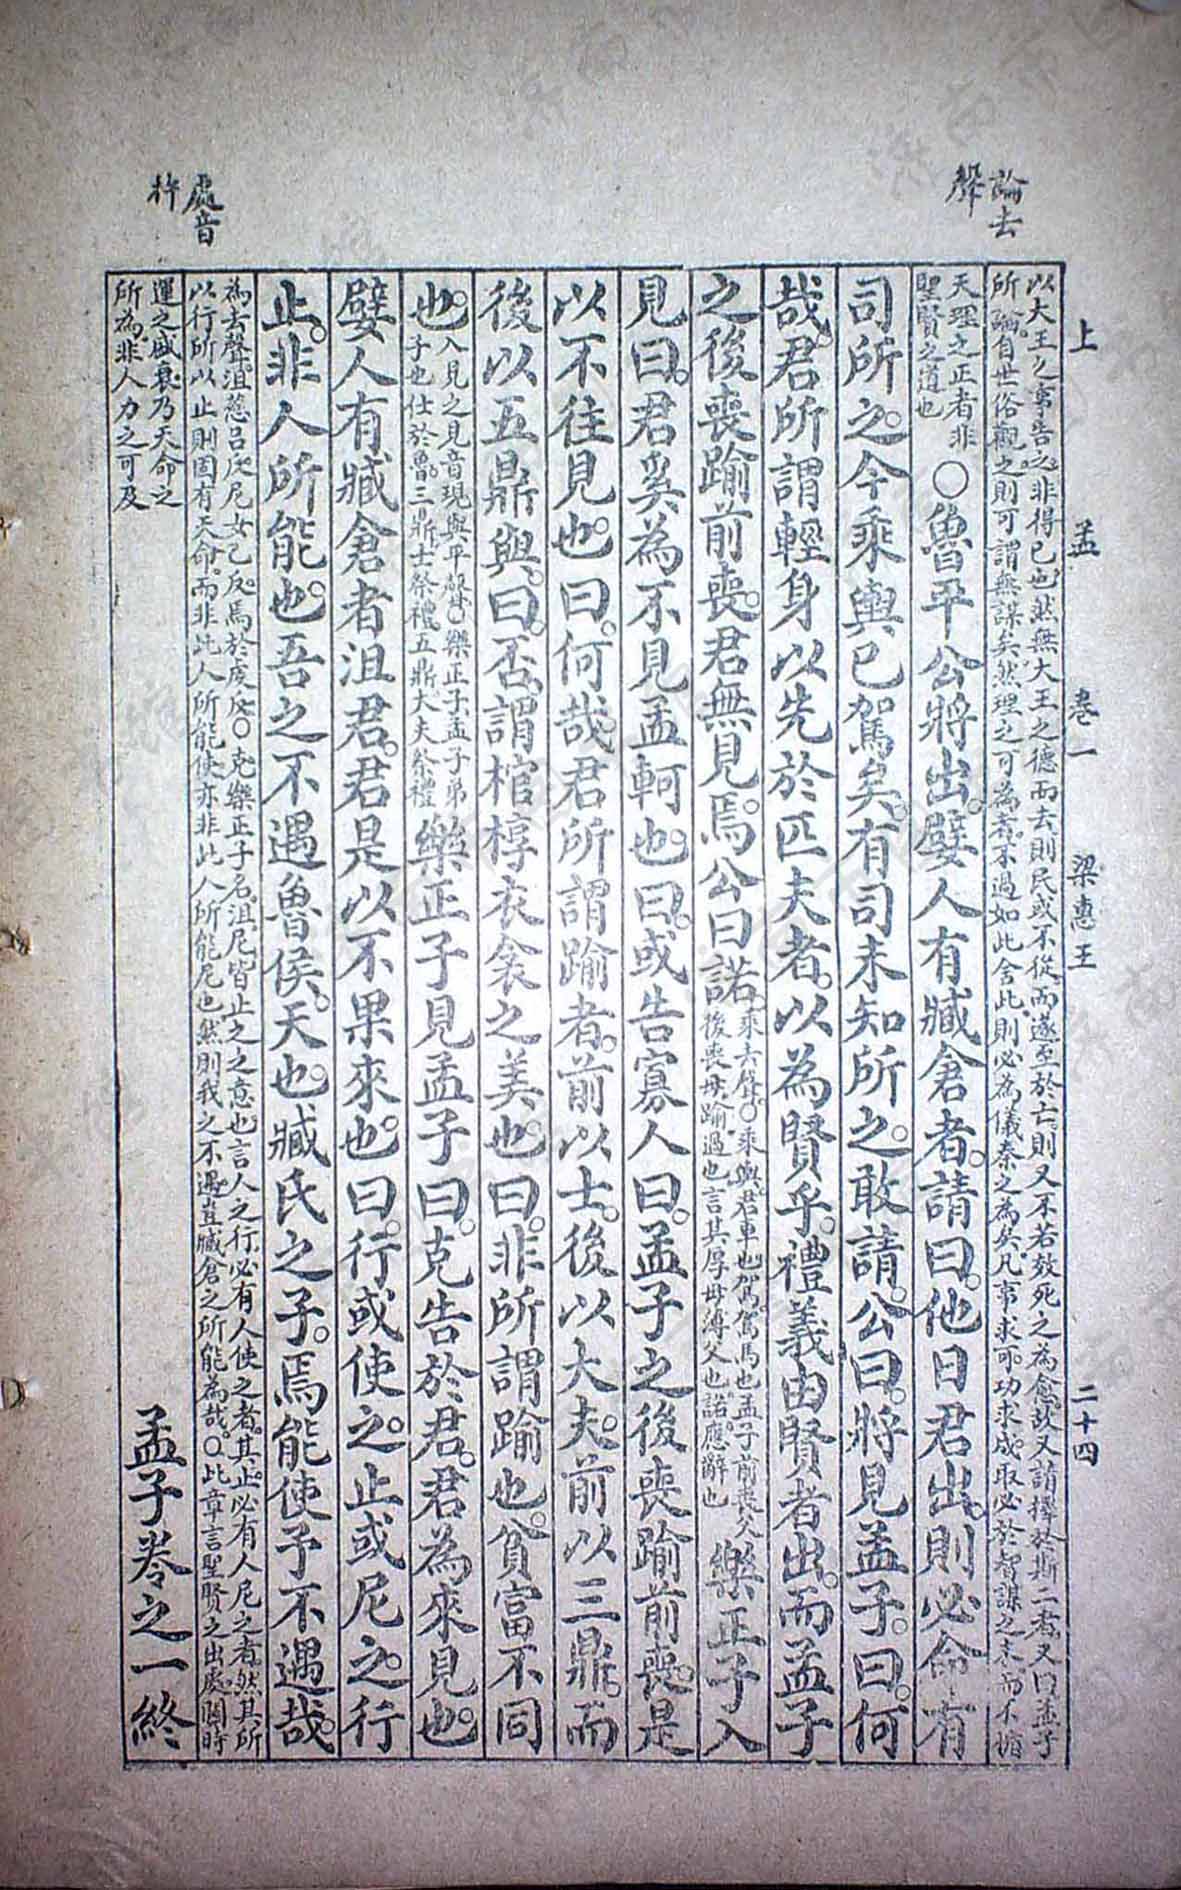 論去
聲
處音
杵
上 孟 卷一 梁惠王 二十四
以大王之事告之。非得已也。然無大王之德而去。則民或不從。而遂至於亡。則又不若效死之為愈。故又請擇於斯二者。又曰孟子
所論。自世俗觀之。則可謂無謀矣。然理之可為者。不過如此。舍此。則必為儀秦之為矣。凡事求可。功求成。取必於智謀之末。而不循
天理之正者。非
聖賢之道也
○魯平公將出。嬖人有臧倉者。請曰。他日君出。則必命有
司所之。今乘輿已駕矣。有司未知所之。敢請。公曰。將見孟子。曰。何
哉。君所謂輕身以先於匹夫者。以為賢乎。禮義由賢者出。而孟子
之後喪踰前喪。君無見焉。公曰諾。
乘去聲。○乘輿。君車也。駕。駕馬也。孟子前喪父
後喪母。踰。過也。言其厚母薄父也。諾。應辭也
樂正子入
見曰。君奚為不見孟軻也。曰。或告寡人曰。孟子之後喪踰前喪。是
以不往見也。曰。何哉。君所謂踰者。前以士。後以大夫。前以三鼎。而
後以五鼎與。曰。否。謂棺椁衣衾之美也。曰。非所謂踰也。貧富不同
也。
入見之見。音現。與平聲。○樂正子。孟子弟
子也。仕於魯。三鼎。士祭禮。五鼎。大夫祭禮
樂正子見孟子曰。克告於君。君為來見也。
嬖人有臧倉者沮君。君是以不果來也。曰。行或使之。止或尼之。行
止。非人所能也。吾之不遇魯侯。天也。臧氏之子。焉能使予不遇哉。
為去聲。沮慈呂反。尼女乙反。焉於虔反。○克。樂正子名。沮尼。皆止之之意也。言人之行。必有人使之者。其止。必有人尼之者。然其所
以行所以止。則固有天命。而非此人所能使。亦非此人所能尼也。然則我之不遇。豈臧倉之所能為哉。○此章言聖賢之出處。關時
運之盛衰。乃天命之
所為。非人力之可及
孟子卷之一終